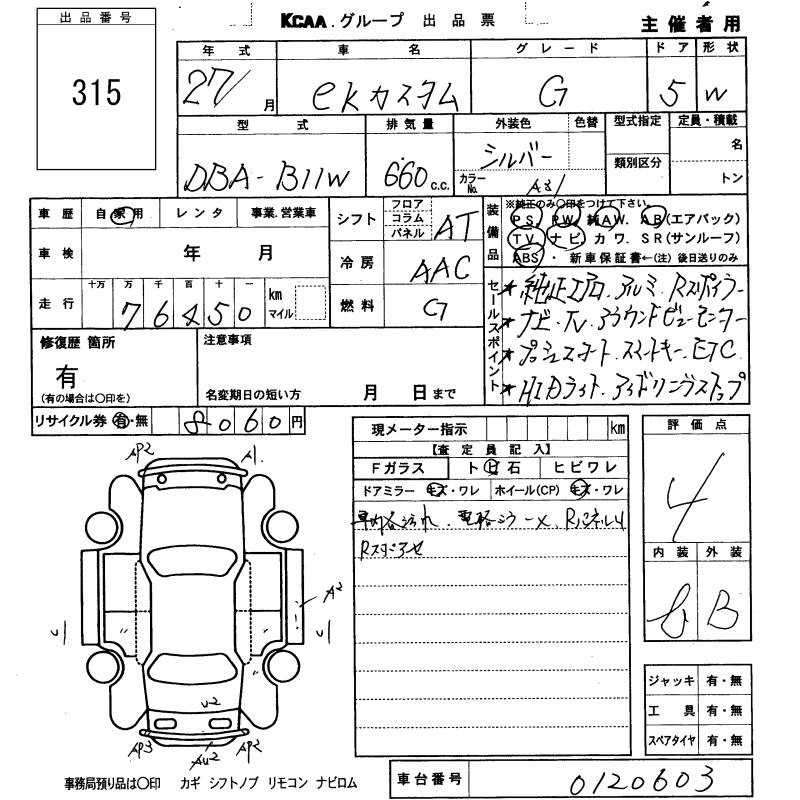 出品番号
315
KCAA.グループ 出品票
主催者用
年式 車名 グレード ドア 形状
27/ 月 ekカスタム G 5 W
型式 排気量 外装色 色替 型式指定 定員・積載
DBA-B11W 660 c.c. シルバー 名
カラーNo. A31 類別区分 トン
車歴 自家用 レンタ 事業.営業車
シフト フロア コラム パネル AT
装備品 ※純正のみ○印をつけて下さい。
PS. PW. 純AW. AB(エアバック)
TV ナビ カワ. SR(サンルーフ)
ABS ・ 新車保証書←(注) 後日送りのみ
車検 年 月
冷房 AAC
走行 十万 万 千 百 十 一
76450 km マイル
燃料 G
セールスポイント
★純正エアロ.アルミ.Rスポイラー
★ナビ.TV.アラウンドビューモニター
★プッシュスタート.スマートキー.ETC
★HIDライト.アイドリングストップ
修復歴 箇所
有
(有の場合は○印を)
注意事項
名変期日の短い方 月 日まで
リサイクル券 有・無 8060円
現メーター指示 km
【査定員記入】
Fガラス トビ石 ヒビワレ
ドアミラー キズ・ワレ ホイール(CP) キズ・ワレ
車内各汚れ. 電格ミラー×. Rパネル
評価点
4
内装 外装
B
AP2 A1
A2
U2
AP3 AU2 AP2
ジャッキ 有・無
工具 有・無
スペアタイヤ 有・無
事務局預り品は○印 カギ シフトノブ リモコン ナビロム
車台番号 0120603